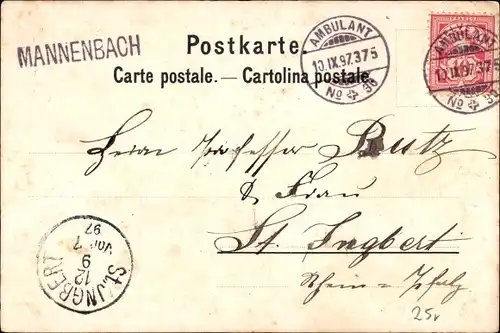 MANNENBACH
Postkarte.
Carte postale. — Cartolina postale.
AMBULANT
10.IX.97.375
No 38
AMBULANT
10.IX.97.375
No 38
Herrn Professor Butz
& Frau
St. Ingbert
Rhein-Pfalz
ST. INGBERT
12
9
Vor 7
97
25,